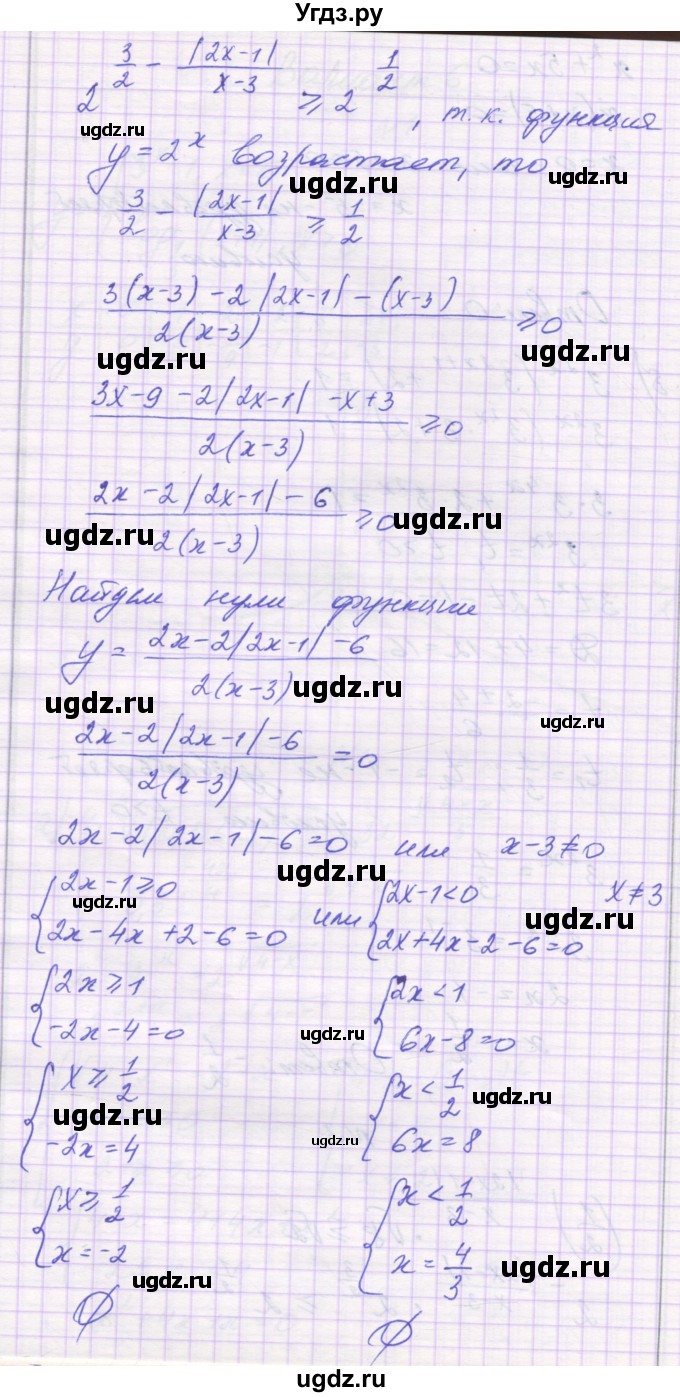 Угдз.ру
2^(3/2 - |2x-1|/(x-3)) ⩾ 2^(1/2), т.к. функция
ugdz.ru
y=2^x возрастает, то
ugdz.ru ugdz.ru
3/2 - |2x-1|/(x-3) ⩾ 1/2
(3(x-3) -2|2x-1| -(x-3))/(2(x-3)) ⩾0
ugdz.ru ugdz.ru
(3x-9 -2|2x-1| -x+3)/(2(x-3)) ⩾0
(2x-2|2x-1|-6)/(2(x-3)) ⩾0
ugdz.ru ugdz.ru
Найдем нули функции
y = (2x-2|2x-1|-6)/(2(x-3))
ugdz.ru ugdz.ru
ugdz.ru
(2x-2|2x-1|-6)/(2(x-3)) =0
2x-2|2x-1|-6=0 или x-3≠0
ugdz.ru
{2x-1⩾0 или {2x-1<0 x≠3
ugdz.ru ugdz.ru
{2x-4x+2-6=0 {2x+4x-2-6=0
{2x⩾1 {2x<1
ugdz.ru ugdz.ru
{-2x-4=0 {6x-8=0
{x⩾1/2 {x<1/2
ugdz.ru ugdz.ru ugdz.ru
{-2x=4 {6x=8
{x⩾1/2 {x<1/2
{x=-2 {x=4/3
ugdz.ru ugdz.ru
∅ ∅
ugdz.ru